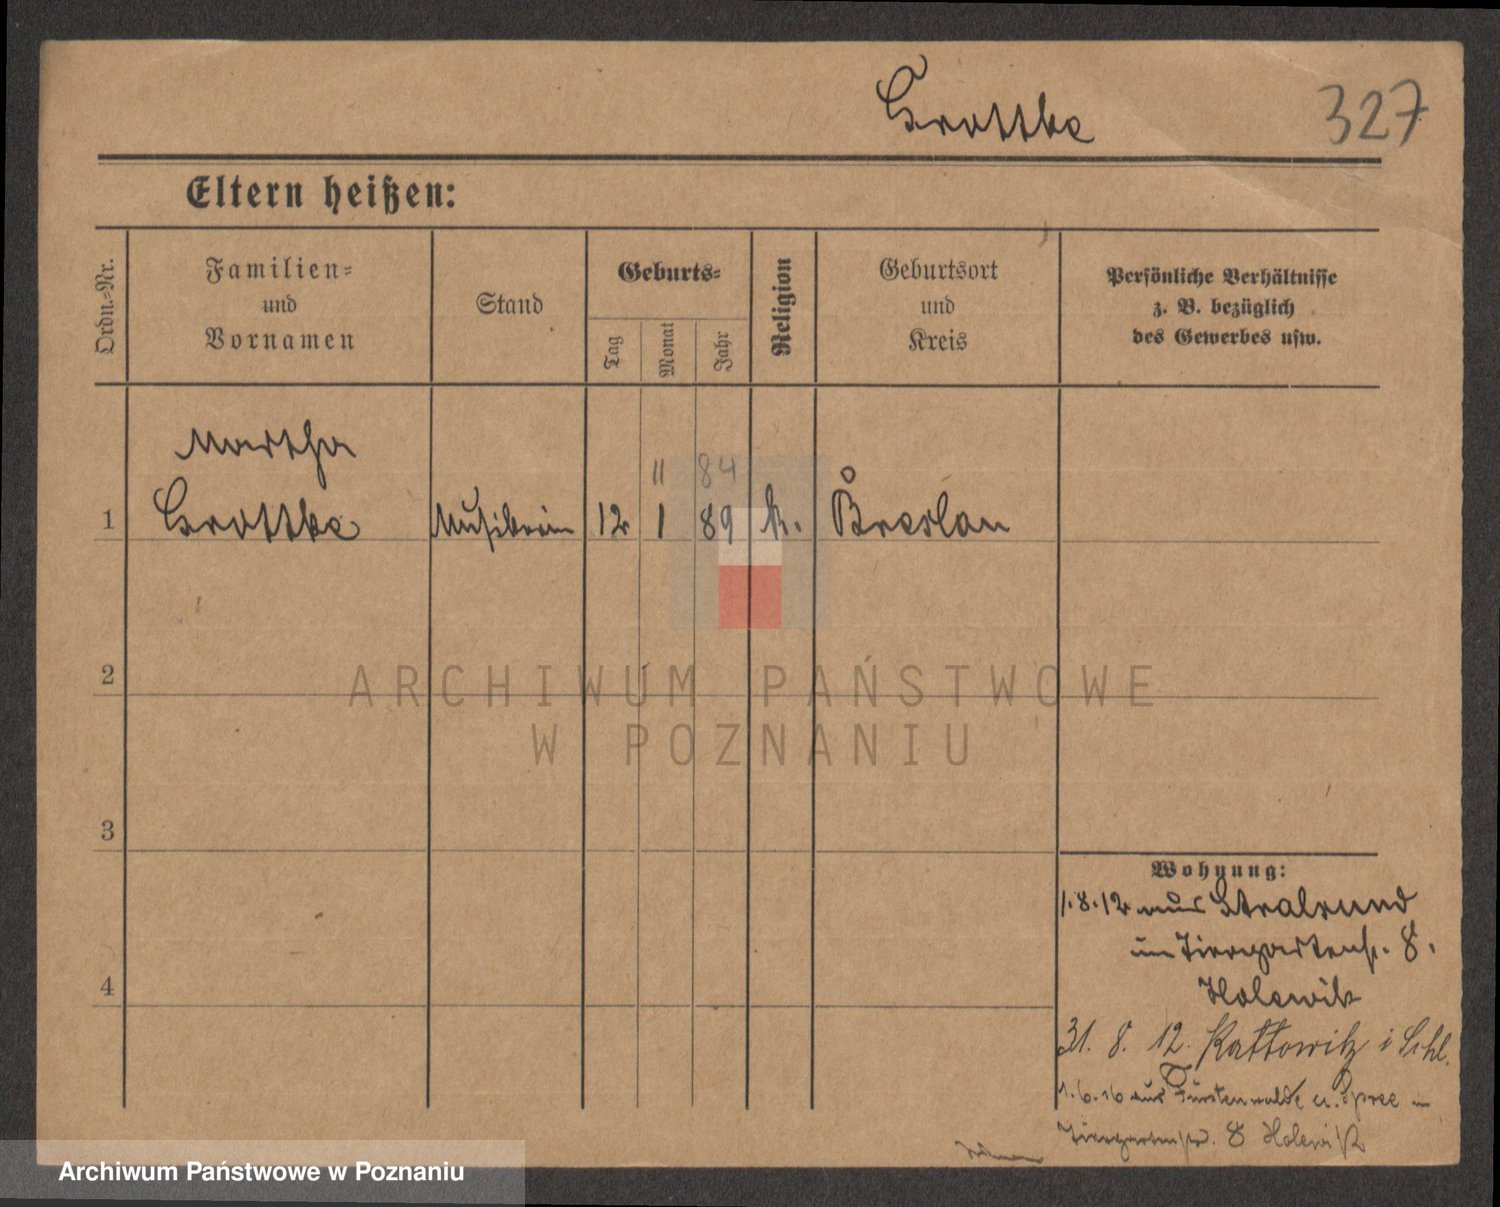 Grottke 327
Eltern heißen:
Ordn.-Nr.
Familien-
und
Vornamen
Stand
Geburts-
Tag
Monat
Jahr
Religion
Geburtsort
und
Kreis
Persönliche Verhältnisse
z. B. bezüglich
des Gewerbes usw.
Martha
11 84
1 Grottke Musikerin 12 1 89 k. Breslau
2
ARCHIWUM PAŃSTWOWE
W POZNANIU
3
Wohnung:
1.8.12 aus Stralsund
in Tiergartenstr. 8.
4
31. 8. 12. Kattowitz i Schl.
1.6.16 aus Fürstenwalde a. Spree in
Tiergartenstr. 8
Archiwum Państwowe w Poznaniu